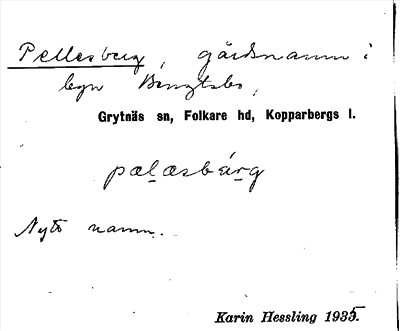 Pellesberg, gårdsnamn i
byn Bengtsbo,
Grytnäs sn, Folkare hd, Kopparbergs l.
pælæsbárg
Nytt namn.
Karin Hessling 1935.